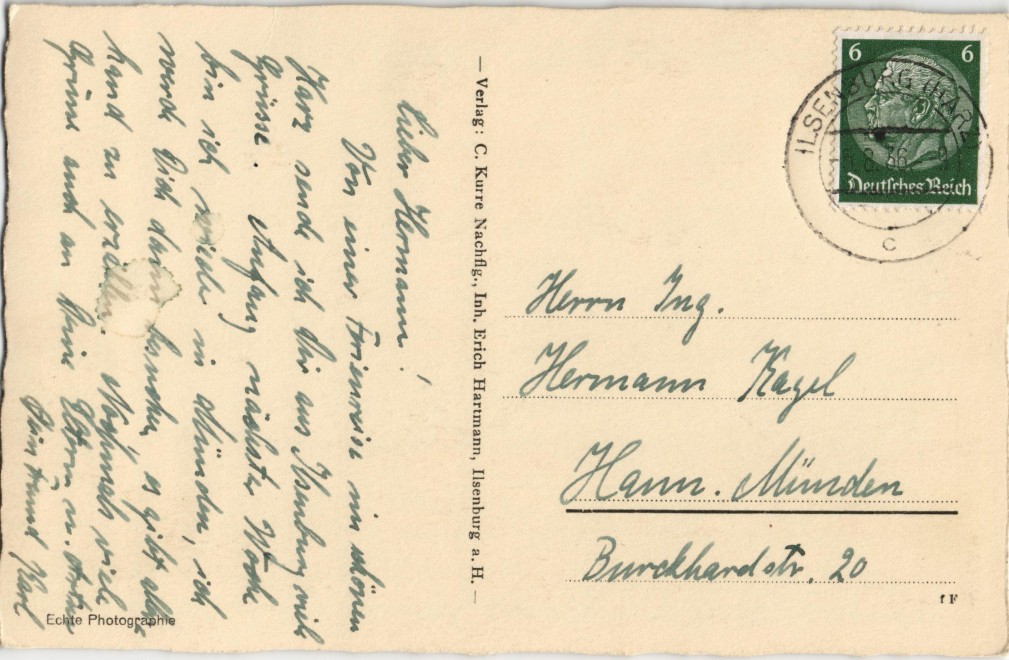 Lieber Hermann!
Von einer Ferienreise im schönen
Harz sende ich Dir aus Ilsenburg viele
Grüsse. Anfang nächster Woche
bin ich wieder in Münden, ich
werde Dich dann besuchen, es gibt aller
hand zu erzählen. Nochmals viele
Grüsse auch an Deine Eltern u.
Dein Freund Karl
Echte Photographie
— Verlag: C. Kurre Nachflg., Inh. Erich Hartmann, Ilsenburg a. H. —
6 6
Deutsches Reich
ILSENBURG (HARZ)
c
Herrn Ing.
Hermann Kagel
Hann. Münden
Burckhardstr. 20
f F